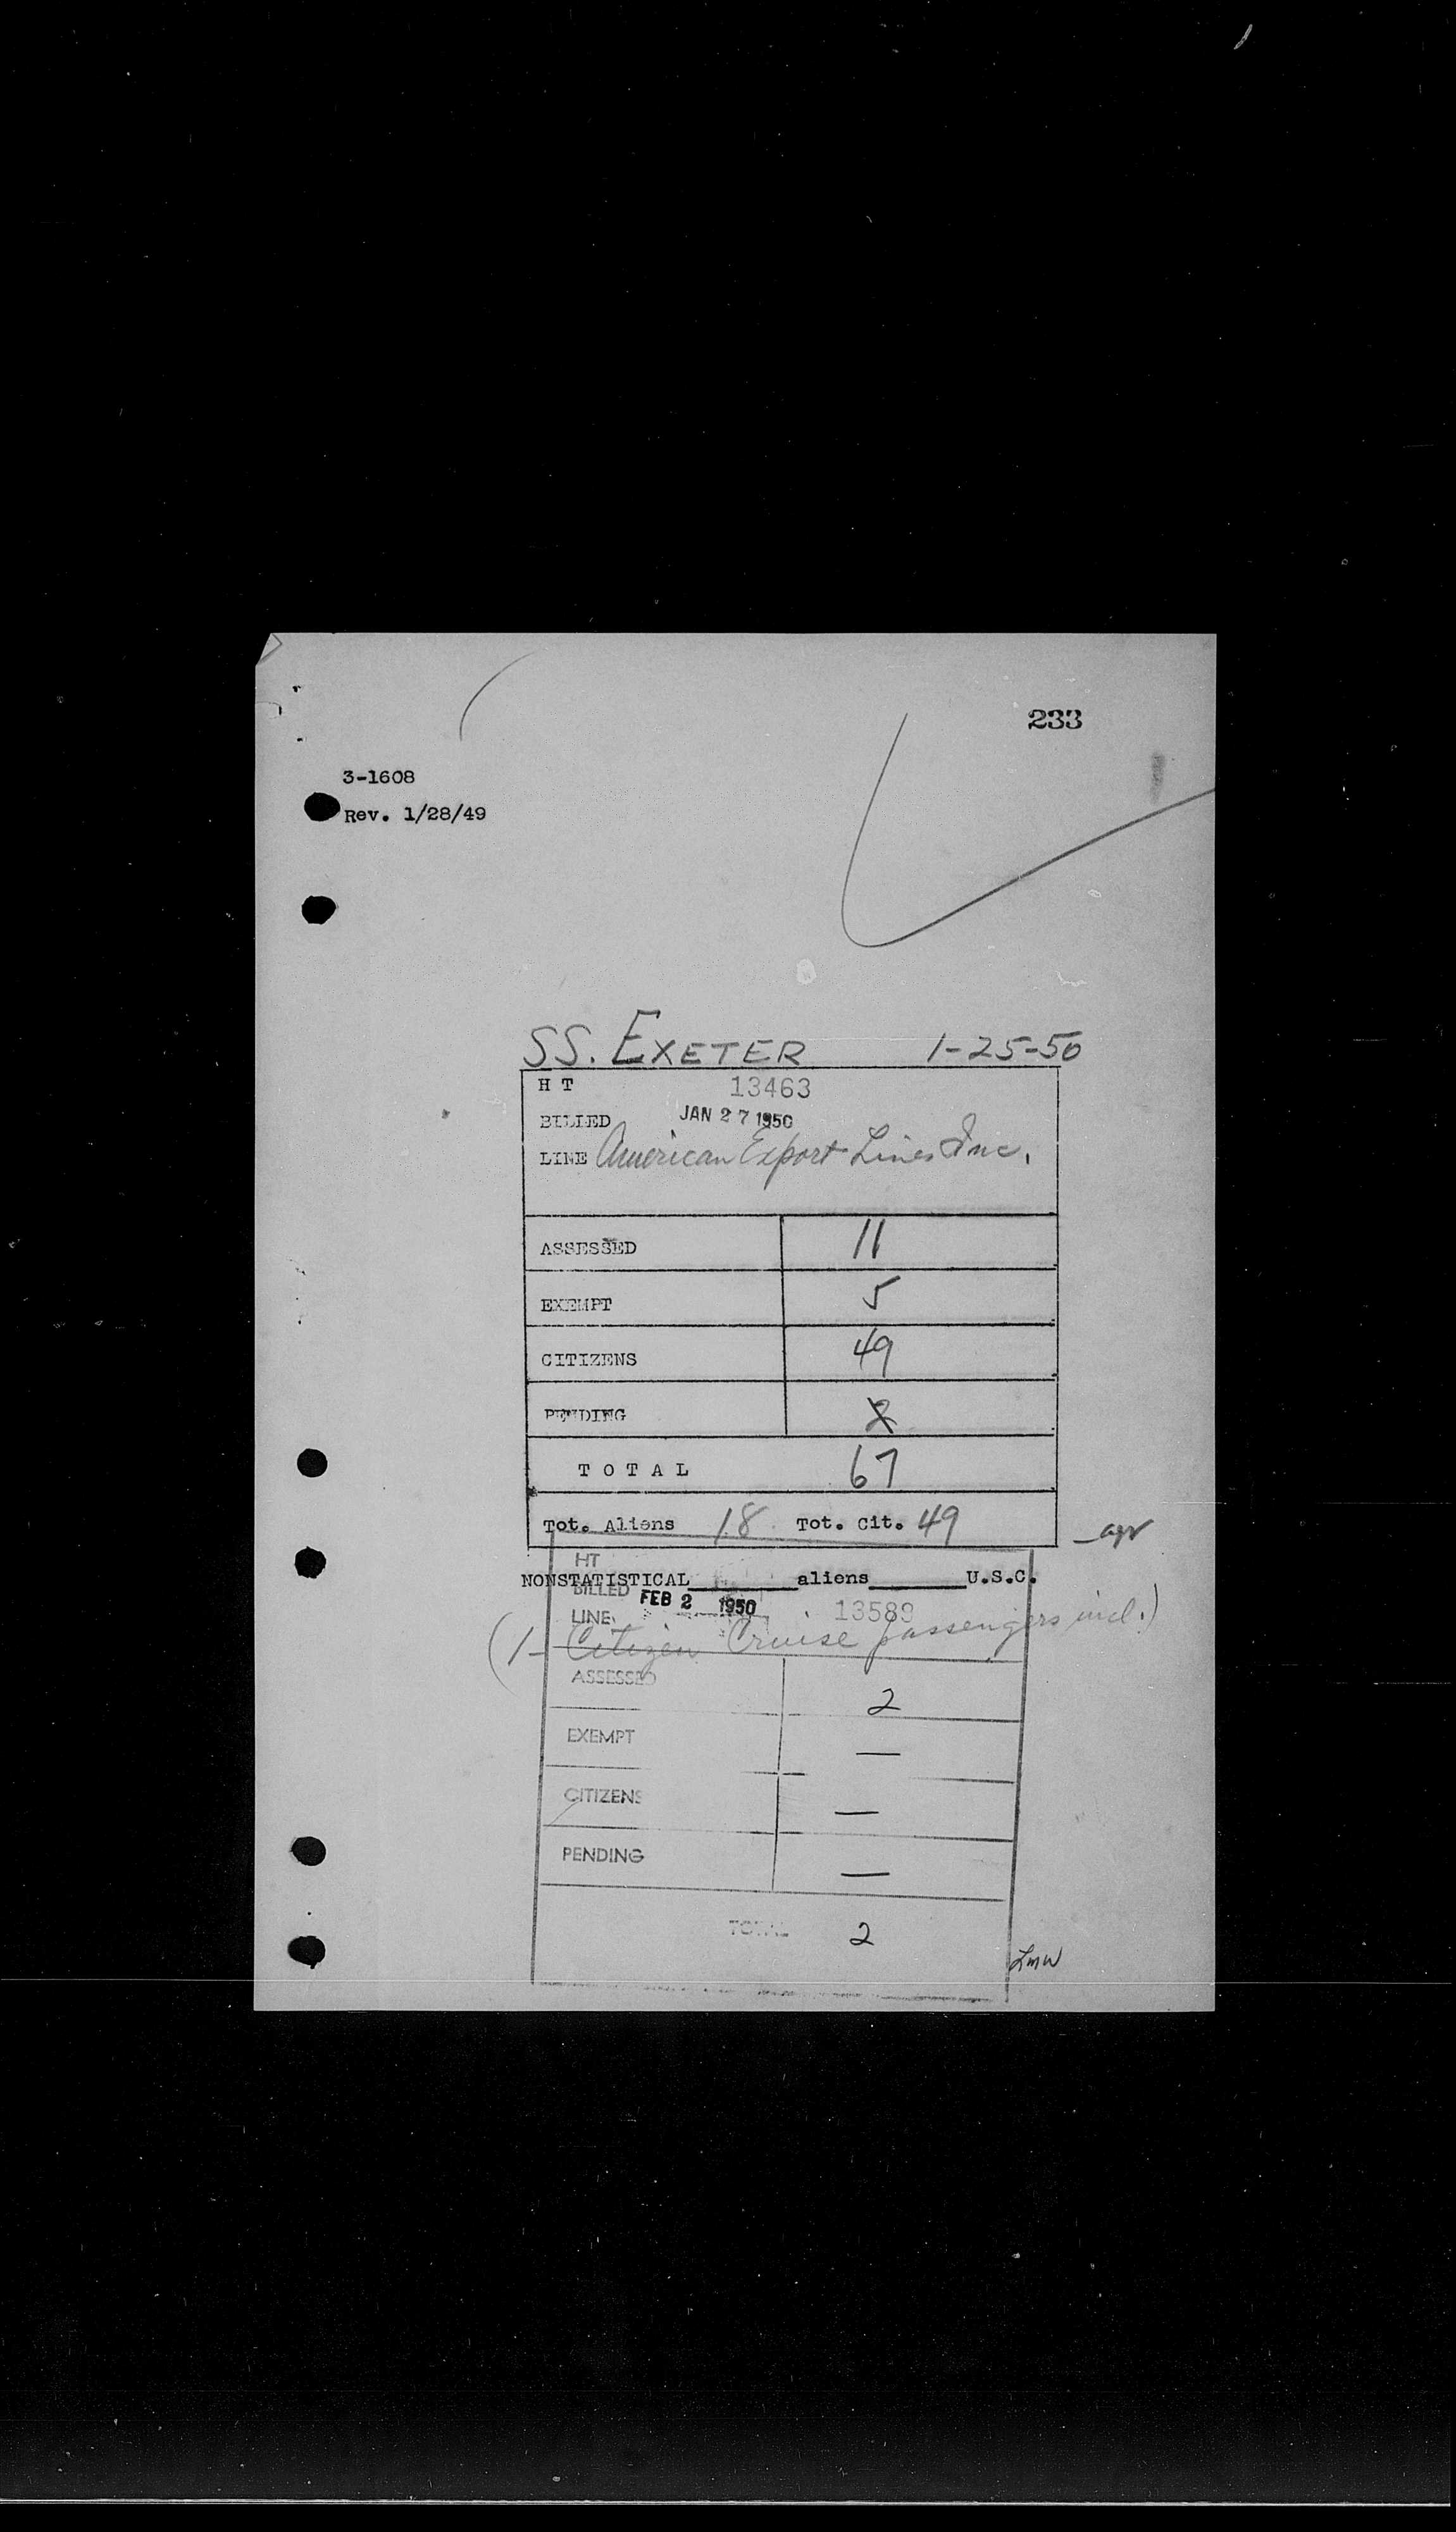 233
3-1608
Rev. 1/28/49
SS. EXETER 1-25-50
H T 13463
BILLED JAN 27 1950
LINE American Export Lines Inc.
ASSESSED 11
EXEMPT 5
CITIZENS 49
PENDING 2
TOTAL 67
Tot. Aliens 18 Tot. Cit. 49
HT
NONSTATISTICAL aliens U.S.C.
BILLED FEB 2 1950
LINE 13589
(1- Citizen Cruise passengers incl.)
ASSESSED 2
EXEMPT —
CITIZENS —
PENDING —
TOTAL 2
LMW